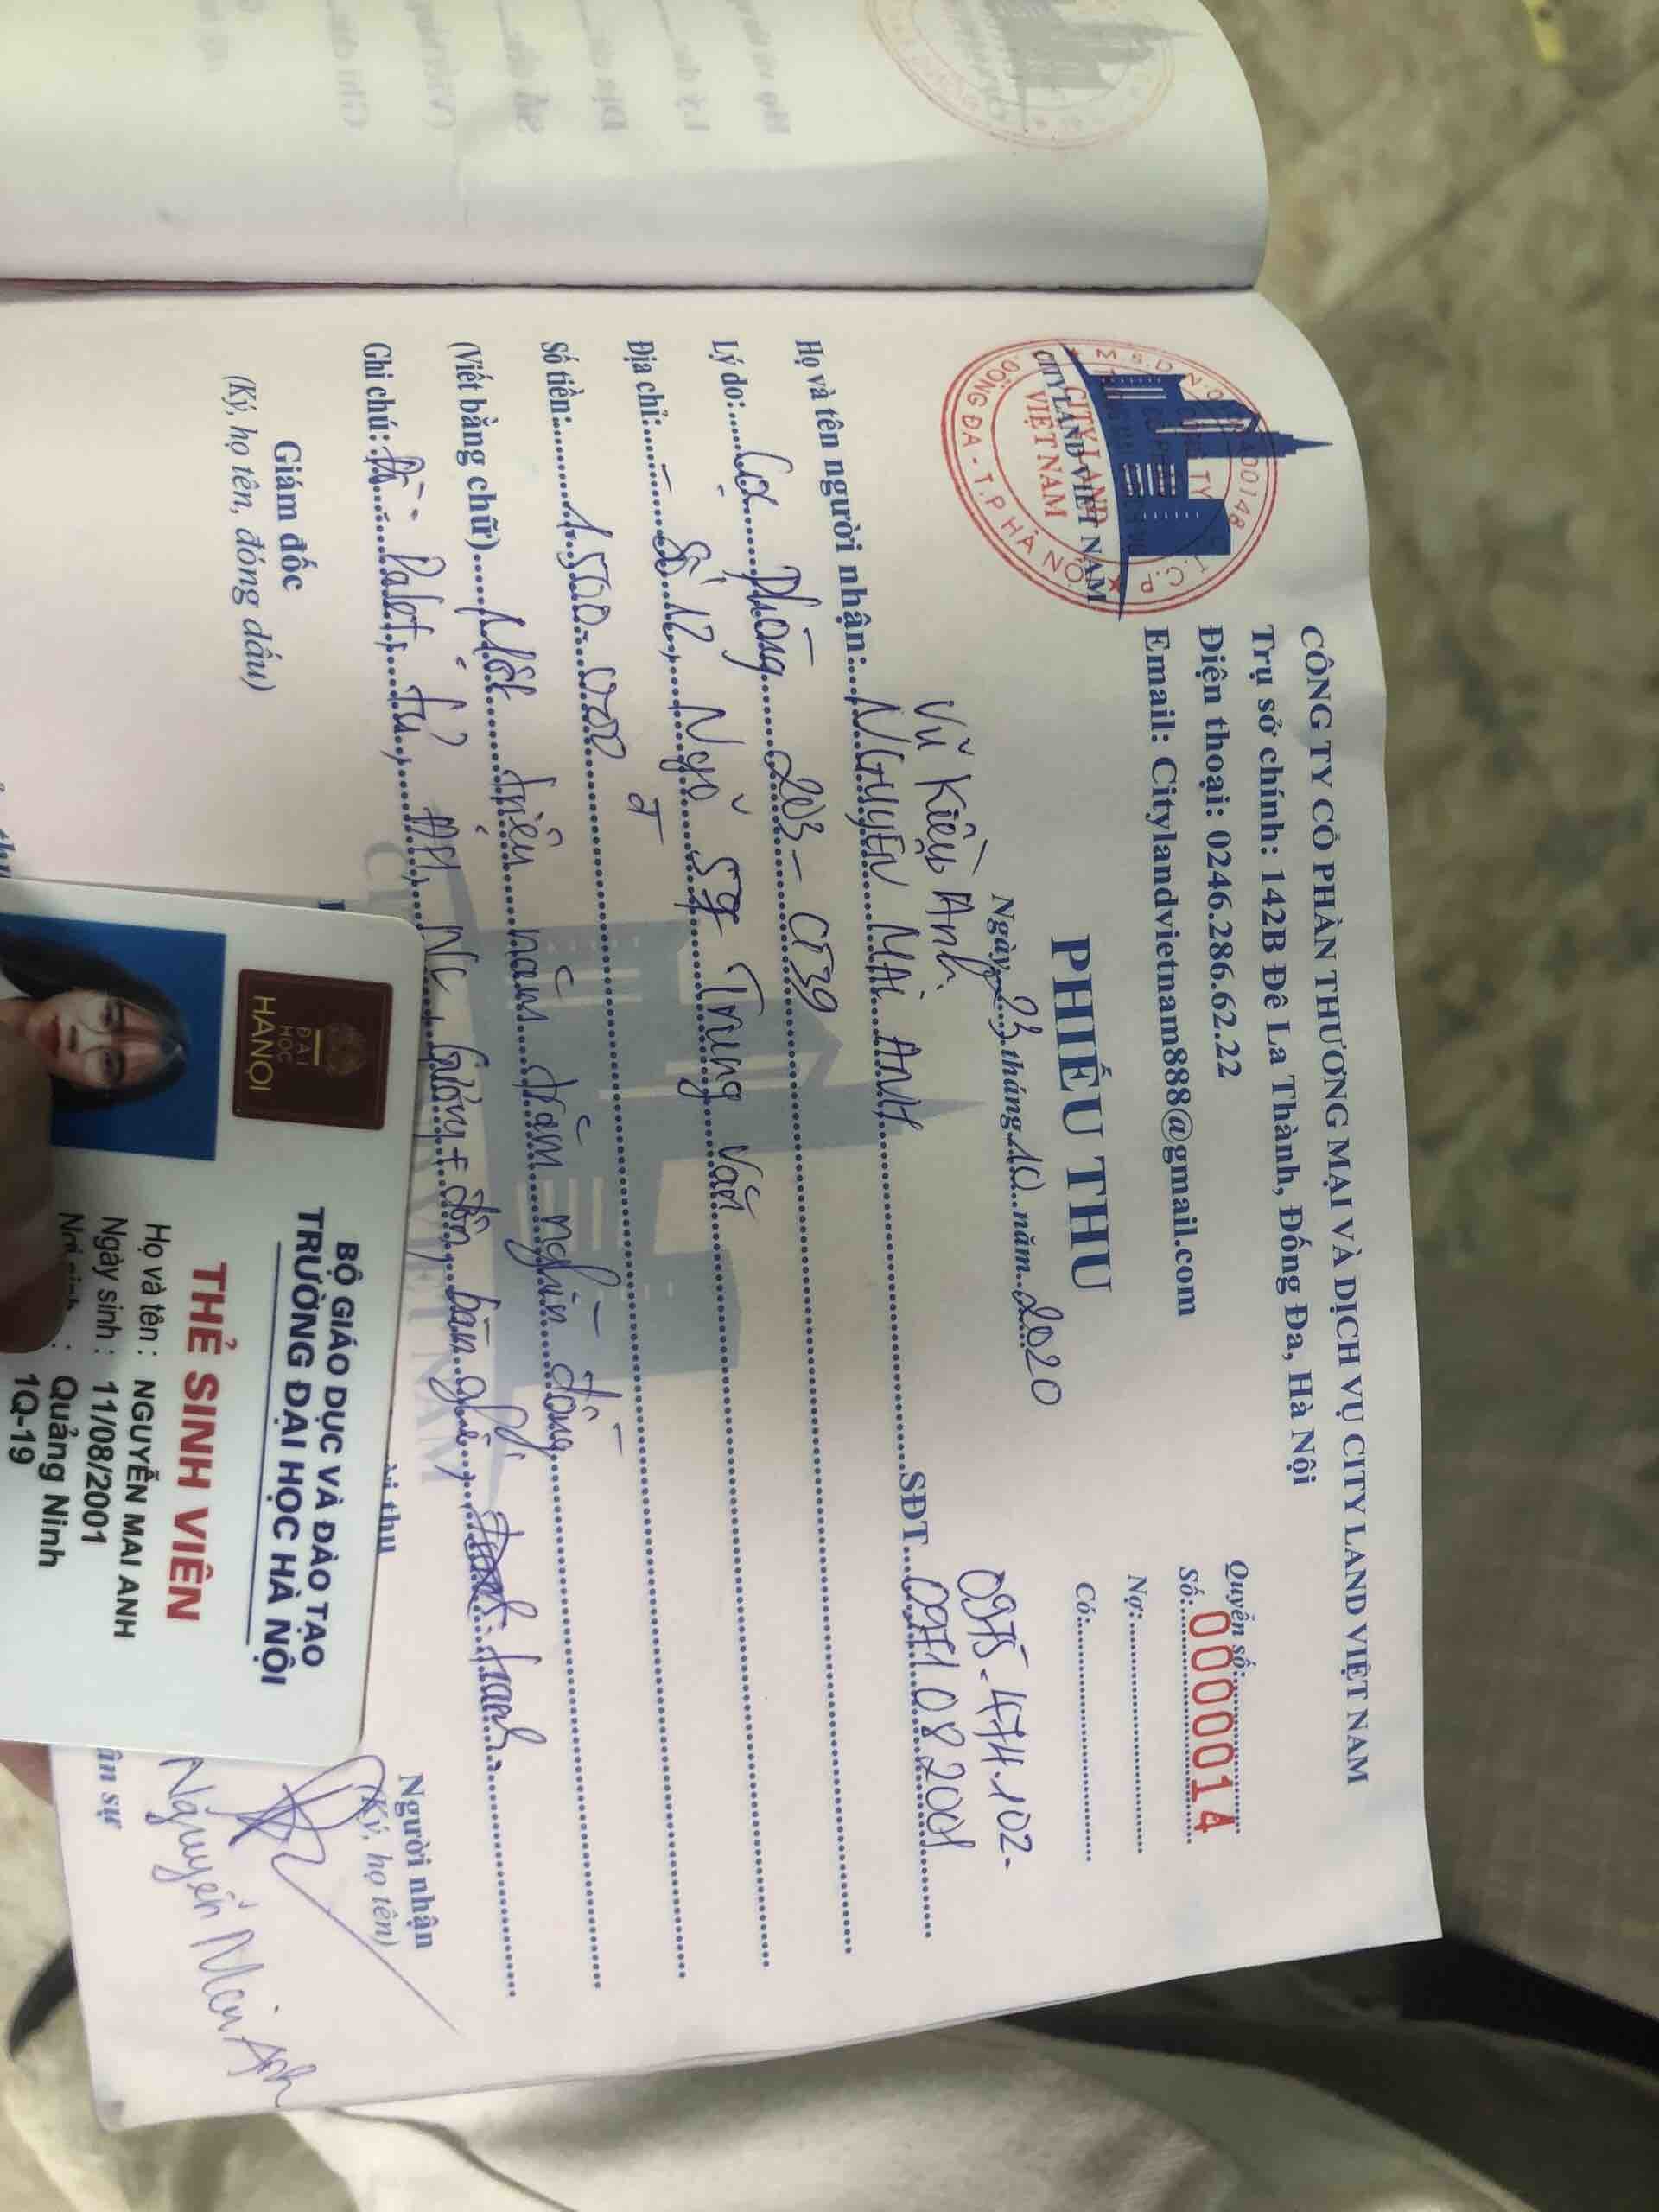 CÔNG TY CỔ PHẦN THƯƠNG MẠI VÀ DỊCH VỤ CITY LAND VIỆT NAM
Trụ sở chính: 142B Đê La Thành, Đống Đa, Hà Nội
Điện thoại: 0246.286.62.22
Email: Citylandvietnam888@gmail.com
CITY LAND VIỆT NAM
CITY LAND
VIỆT NAM
ĐỐNG ĐA - T.P HÀ NỘI
Quyển số:
Số: 0000014
Nợ:
Có:
PHIẾU THU
Ngày 23 tháng 10 năm 2020
Vũ Kiều Anh 0975.474.102
Họ và tên người nhận: NGUYỄN MAI ANH SĐT 0971082001
Lý do: Cọ Phòng 203 - CT39
Địa chỉ: Số 12, Ngõ 59 Trung Văn
Số tiền: 1.500.000 đ
(Viết bằng chữ) Một triệu năm trăm nghìn đồng
Ghi chú: palet, tủ, Giường + đôn, bàn ghế, tranh.
Giám đốc
(Ký, họ tên, đóng dấu)
Người nhận
(Ký, họ tên)
Nguyễn Mai Anh
ĐẠI
HỌC
HANOI
BỘ GIÁO DỤC VÀ ĐÀO TẠO
TRƯỜNG ĐẠI HỌC HÀ NỘI
THẺ SINH VIÊN
Họ và tên : NGUYỄN MAI ANH
Ngày sinh : 11/08/2001
Nơi sinh : Quảng Ninh
1Q-19